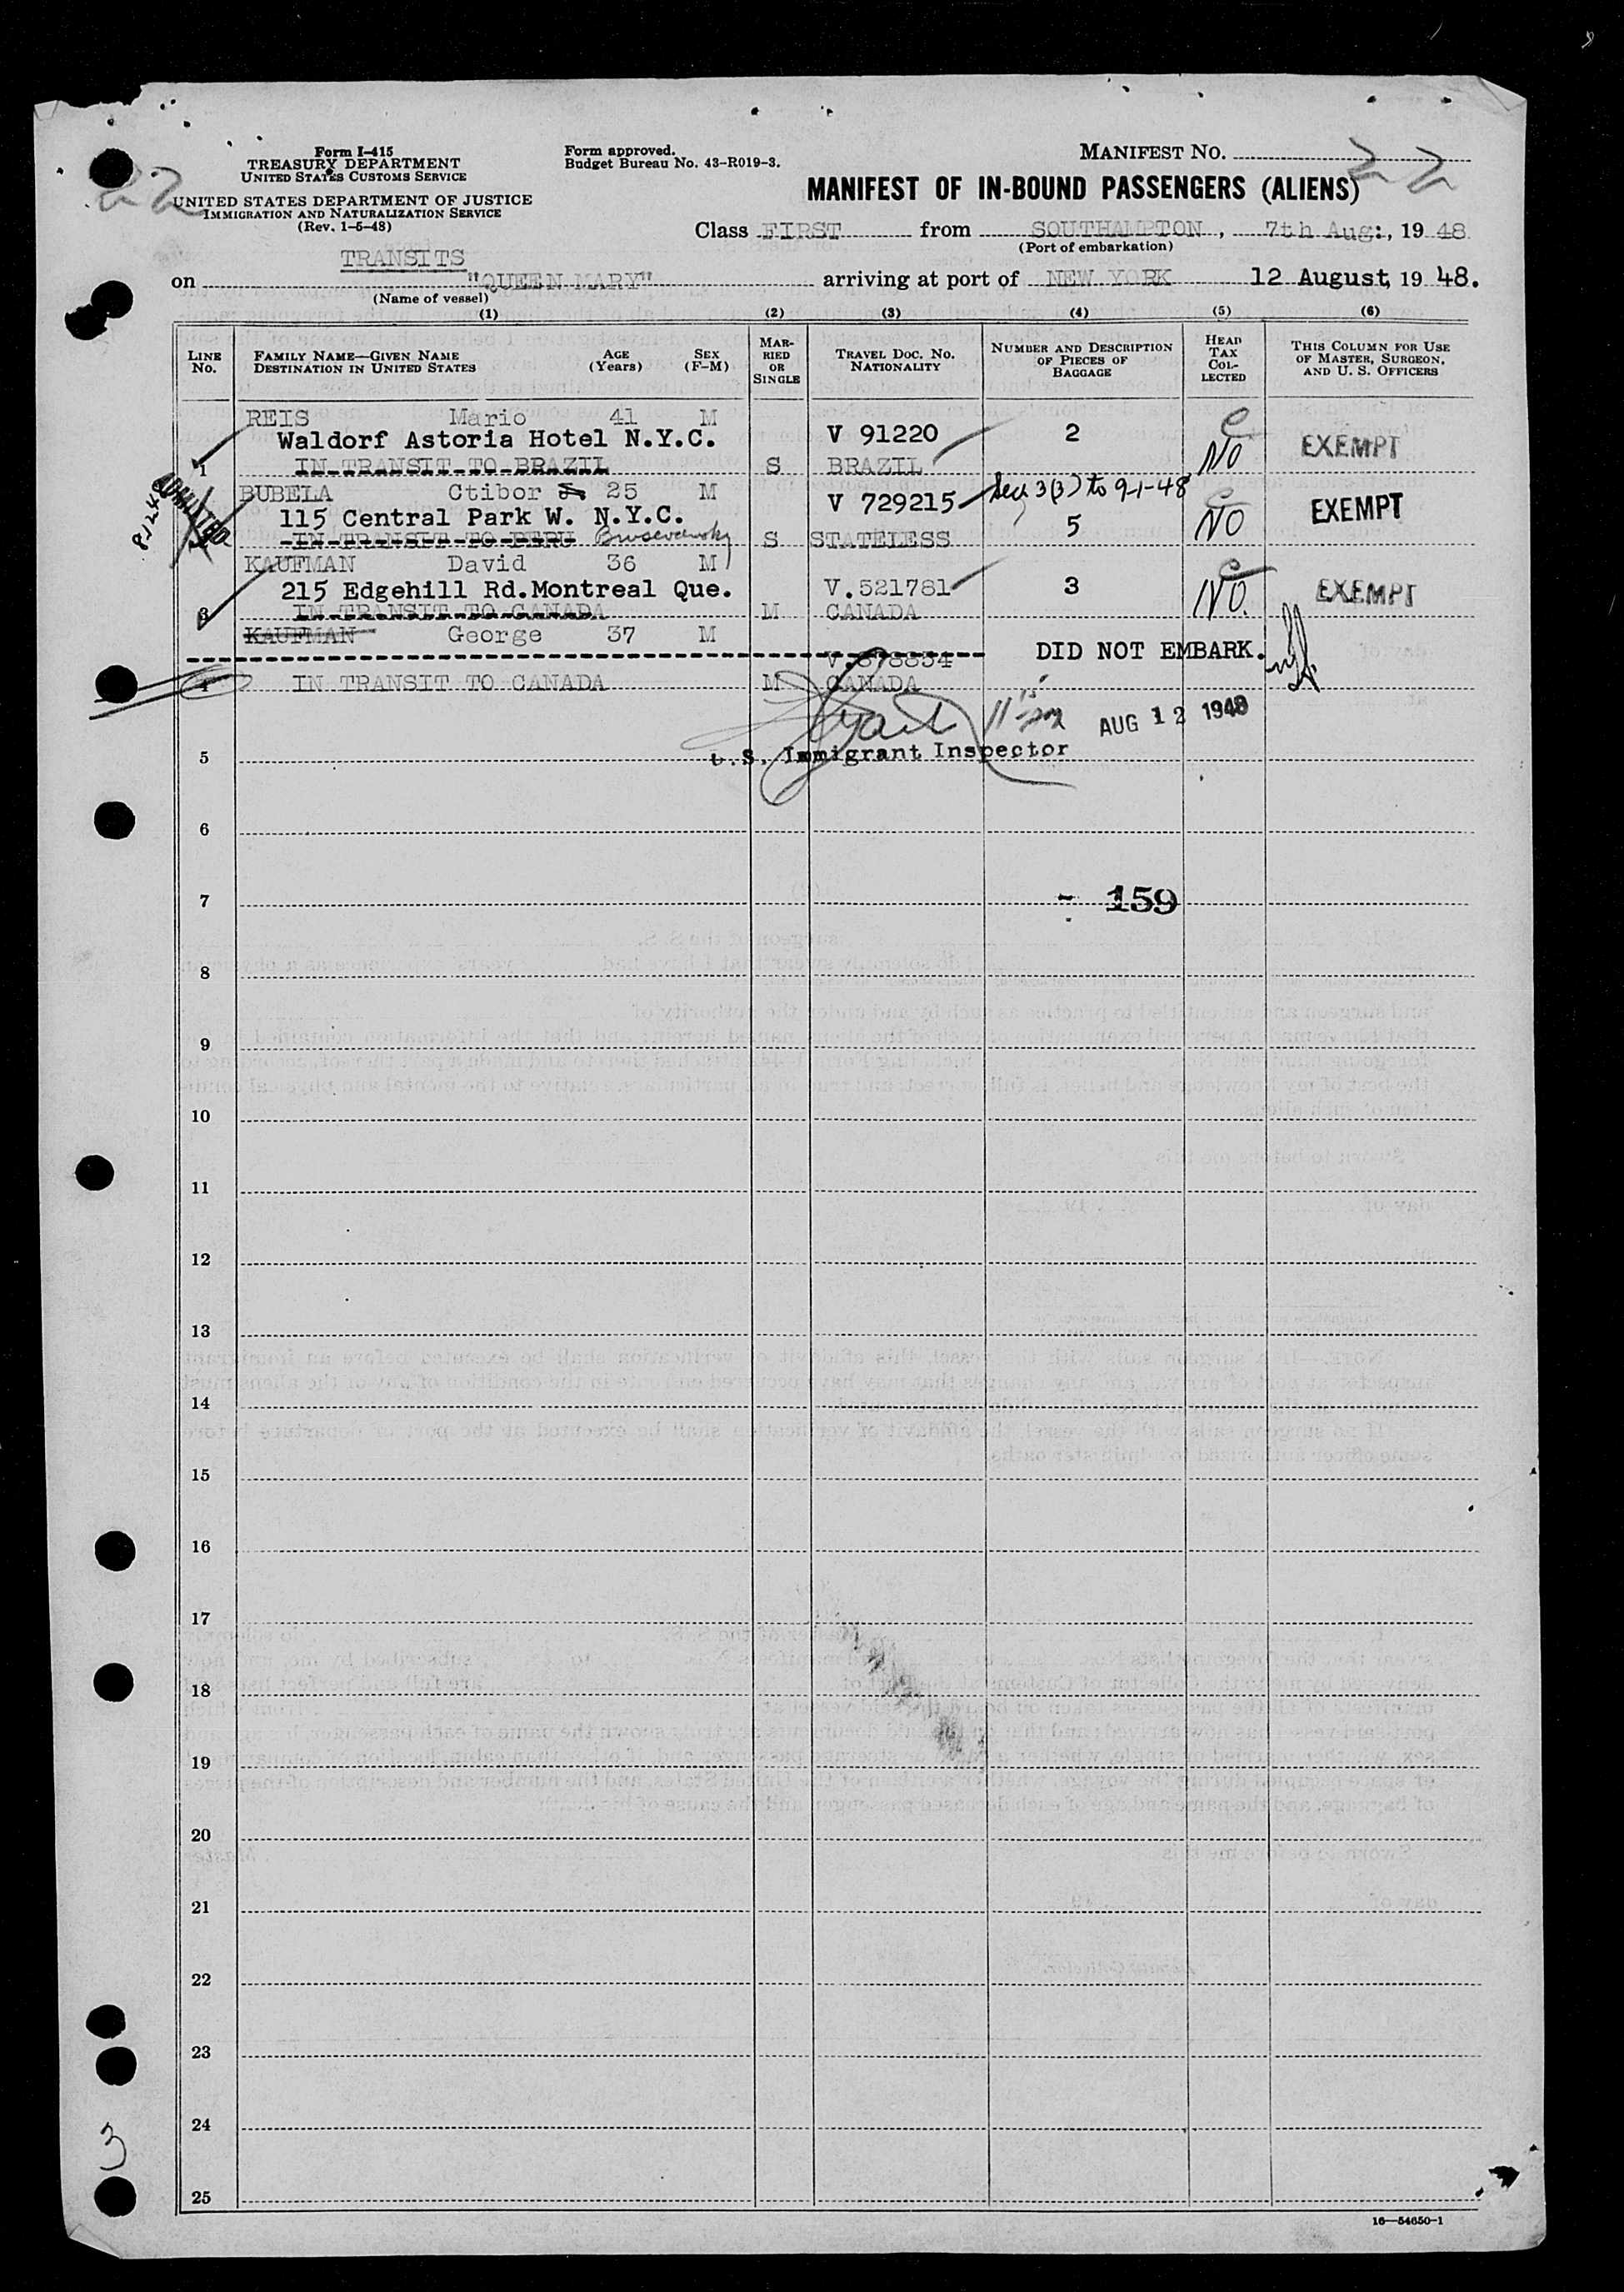 Form I-415
TREASURY DEPARTMENT
UNITED STATES CUSTOMS SERVICE
UNITED STATES DEPARTMENT OF JUSTICE
IMMIGRATION AND NATURALIZATION SERVICE
(Rev. 1-5-48)
Form approved.
Budget Bureau No. 43-R019-3.
MANIFEST NO. 22
22
MANIFEST OF IN-BOUND PASSENGERS (ALIENS)
Class FIRST from SOUTHAMPTON, 7th Aug:, 19 48
(Port of embarkation)
TRANSITS
on "QUEEN MARY" arriving at port of NEW YORK 12 August, 19 48.
(Name of vessel)
(1) (2) (3) (4) (5) (6)
LINE No.
FAMILY NAME—GIVEN NAME DESTINATION IN UNITED STATES
AGE (Years)
SEX (F-M)
MARRIED OR SINGLE
TRAVEL DOC. NO. NATIONALITY
NUMBER AND DESCRIPTION OF PIECES OF BAGGAGE
HEAD TAX COLLECTED
THIS COLUMN FOR USE OF MASTER, SURGEON, AND U. S. OFFICERS
REIS Mario 41 M
Waldorf Astoria Hotel N.Y.C. V 91220 2 EXEMPT
1 IN TRANSIT TO BRAZIL S BRAZIL NO
ADMITTED
BUBELA Ctibor 25 M Sec 3(3) to 9-1-48
115 Central Park W. N.Y.C. V 729215 5 NO EXEMPT
IN TRANSIT TO PERU S STATELESS
KAUFMAN David 36 M
215 Edgehill Rd.Montreal Que. V.521781 3 EXEMPT
3 IN TRANSIT TO CANADA M CANADA NO.
KAUFMAN George 37 M
DID NOT EMBARK.
4 IN TRANSIT TO CANADA M CANADA
AUG 12 1948
5 U.S. Immigrant Inspector
6
7 - 159
8
9
10
11
12
13
14
15
16
17
18
19
20
21
22
23
24
25
3
16—54650-1